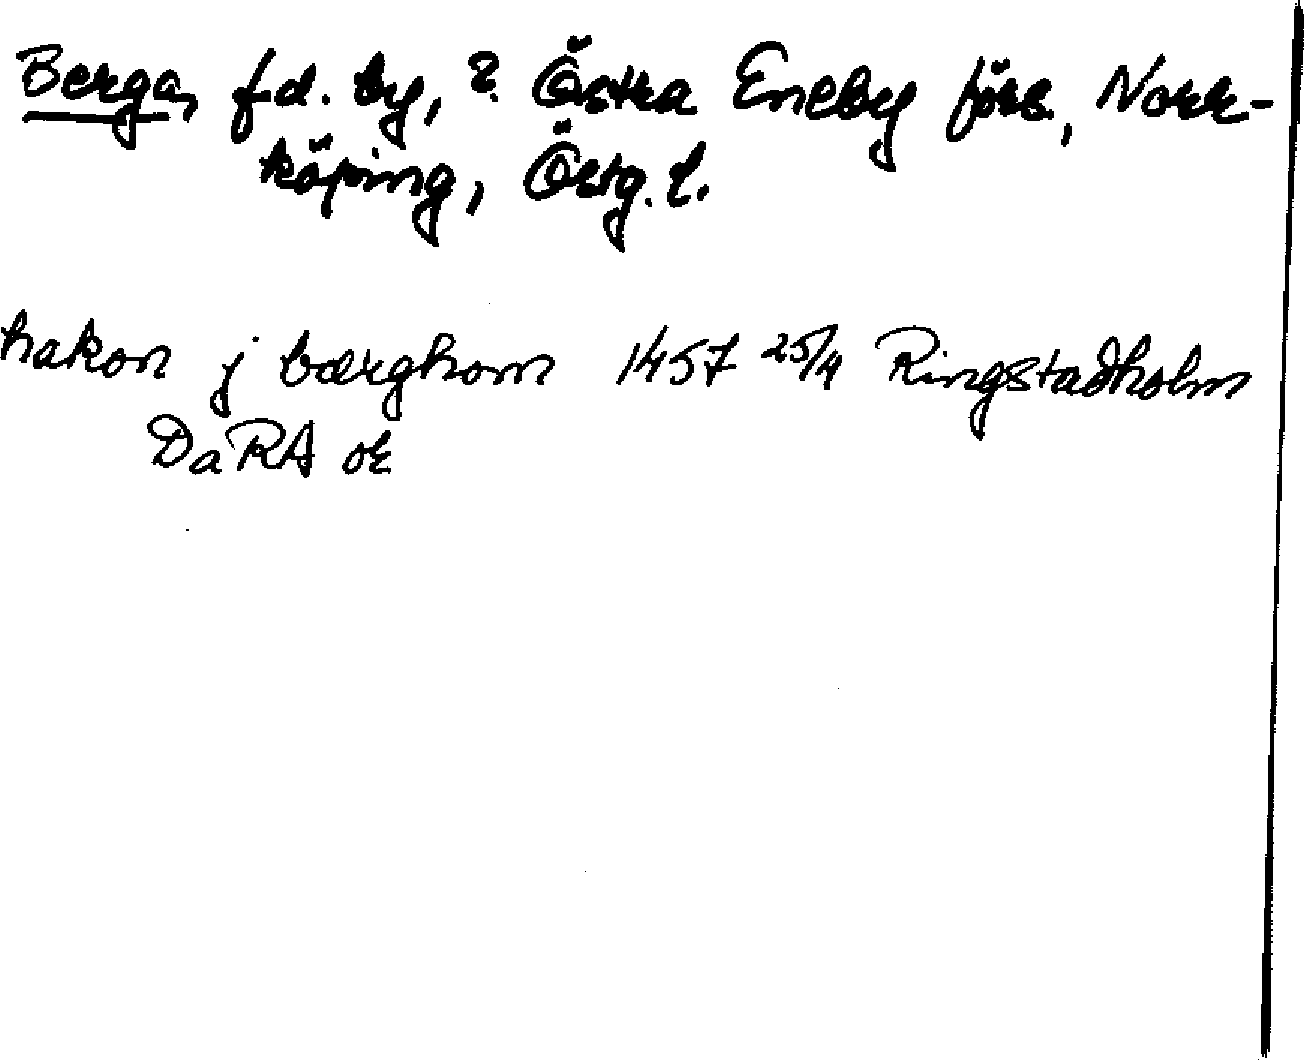 Berga, f.d. by, ? Östra Eneby förs., Norr-
köping, Östg. l.
hakon j bærghom 1457 25/4 Ringstadholm
DaRA or